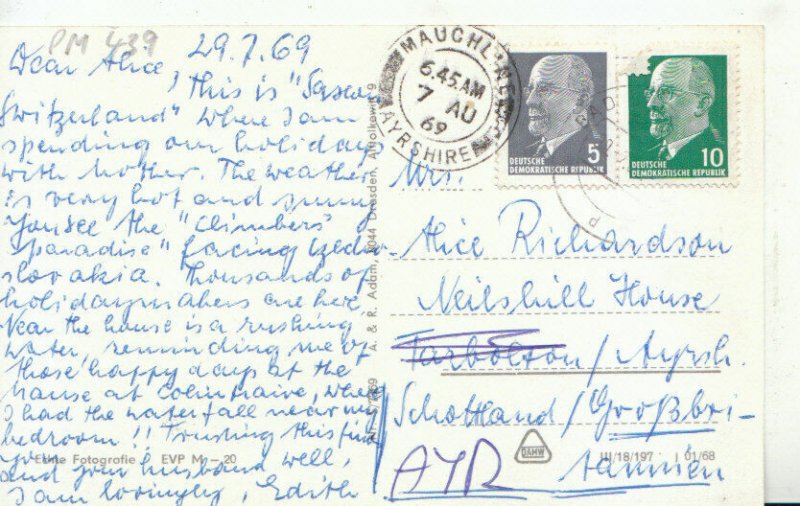 PM 439
29.7.69
Dear Alice,
this is "Saxon
Switzerland" where I am
spending our holidays
with mother. The weather
is very hot and sunny
You see the "Climbers'
paradise" facing Czecho-
slovakia. Thousands of
holidaymakers are here.
Near the house is a rushing
water, reminding me of
those happy days at the
manse at Colintraive, where
I had the waterfall near my
bedroom!! Trusting this find
you
and your husband well,
I am lovingly, Edith
Echte Fotografie EVP M –20
A. & R. Adam, 8044 Dresden,
MAUCHLINE
6.45AM
7 AU
69
AYRSHIRE
5
DEUTSCHE
DEMOKRATISCHE REPUBLIK
10
DEUTSCHE
DEMOKRATISCHE REPUBLIK
Mrs.
Alice Richardson
Neilshill House
Tarbolton/Ayrsh.
Schottland/Großbri-
tannien
AYR
DAMW
III/18/197 J 01/68